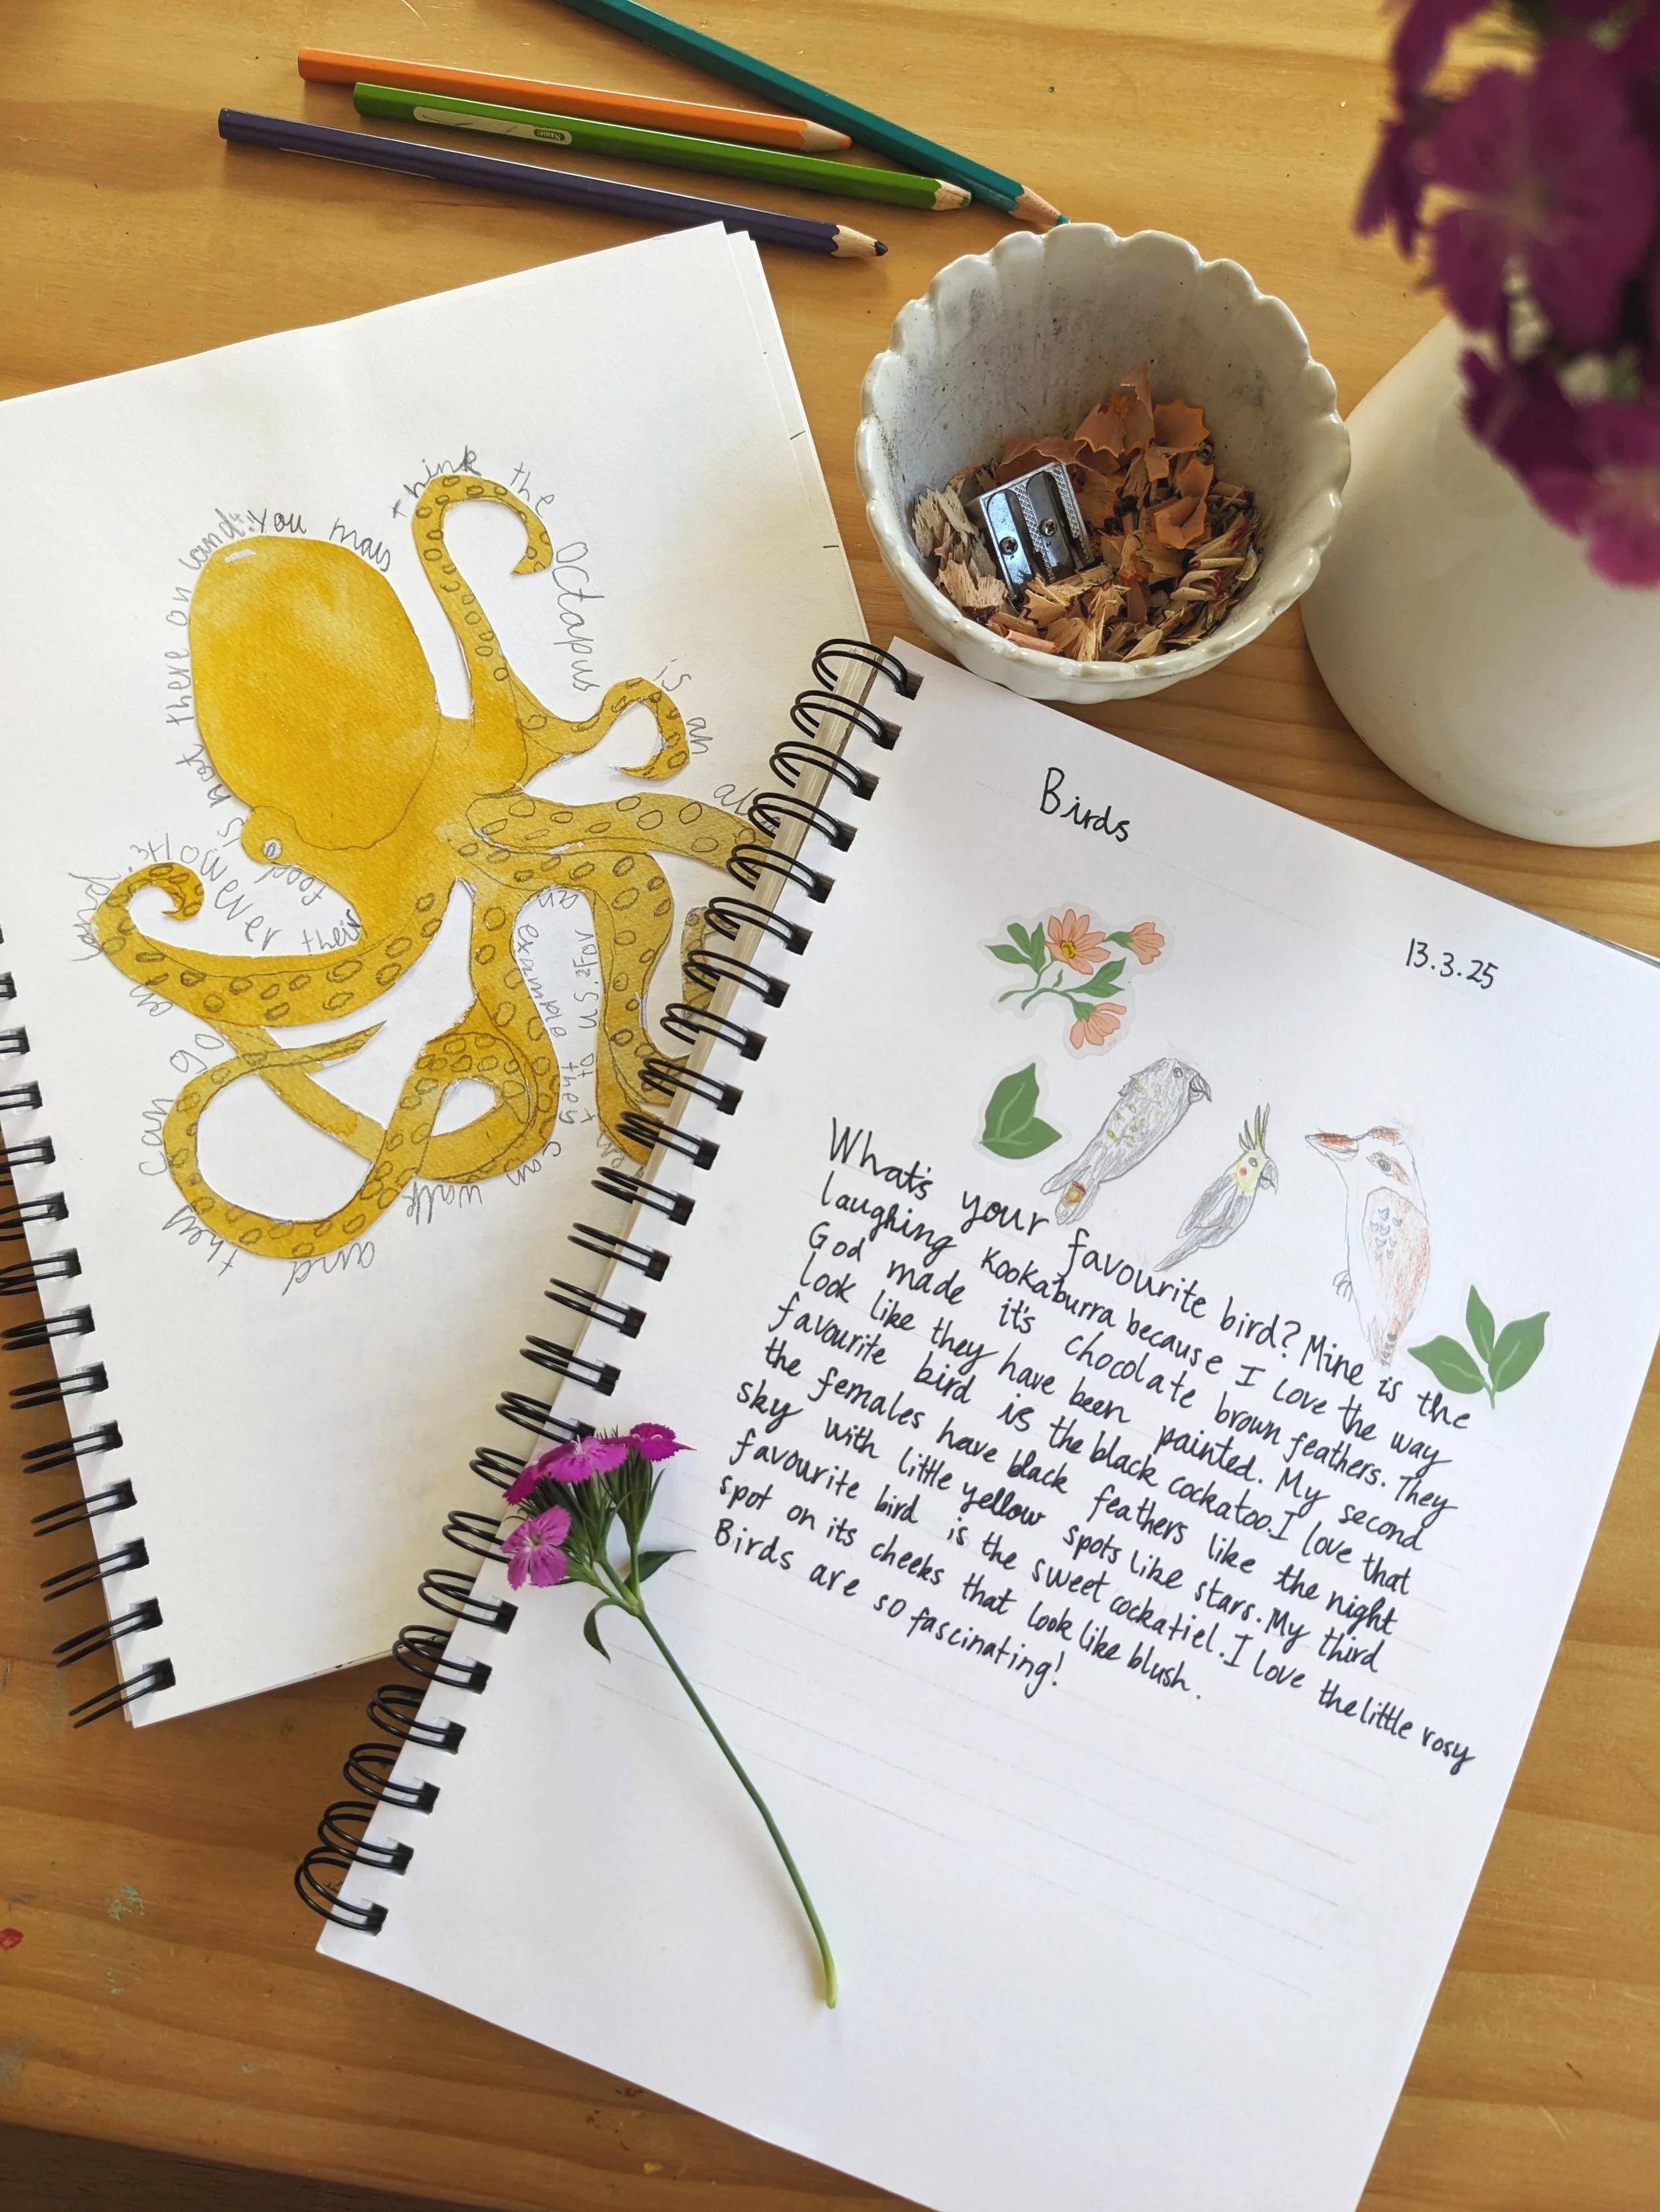 Name:
You may
think the
Octapus
is an
as an
example they
can walk
and
they
can go
on
land.
However
their
food is
not there on land.
Birds
13.3.25
What's your favourite bird? Mine is the
laughing Kookaburra because I love the way
God made it's chocolate brown feathers. They
look like they have been painted. My second
favourite bird is the black cockatoo. I love that
the females have black feathers like the night
sky with little yellow spots like stars. My third
favourite bird is the sweet cockatiel. I love the little rosy
spot on its cheeks that look like blush.
Birds are so fascinating!